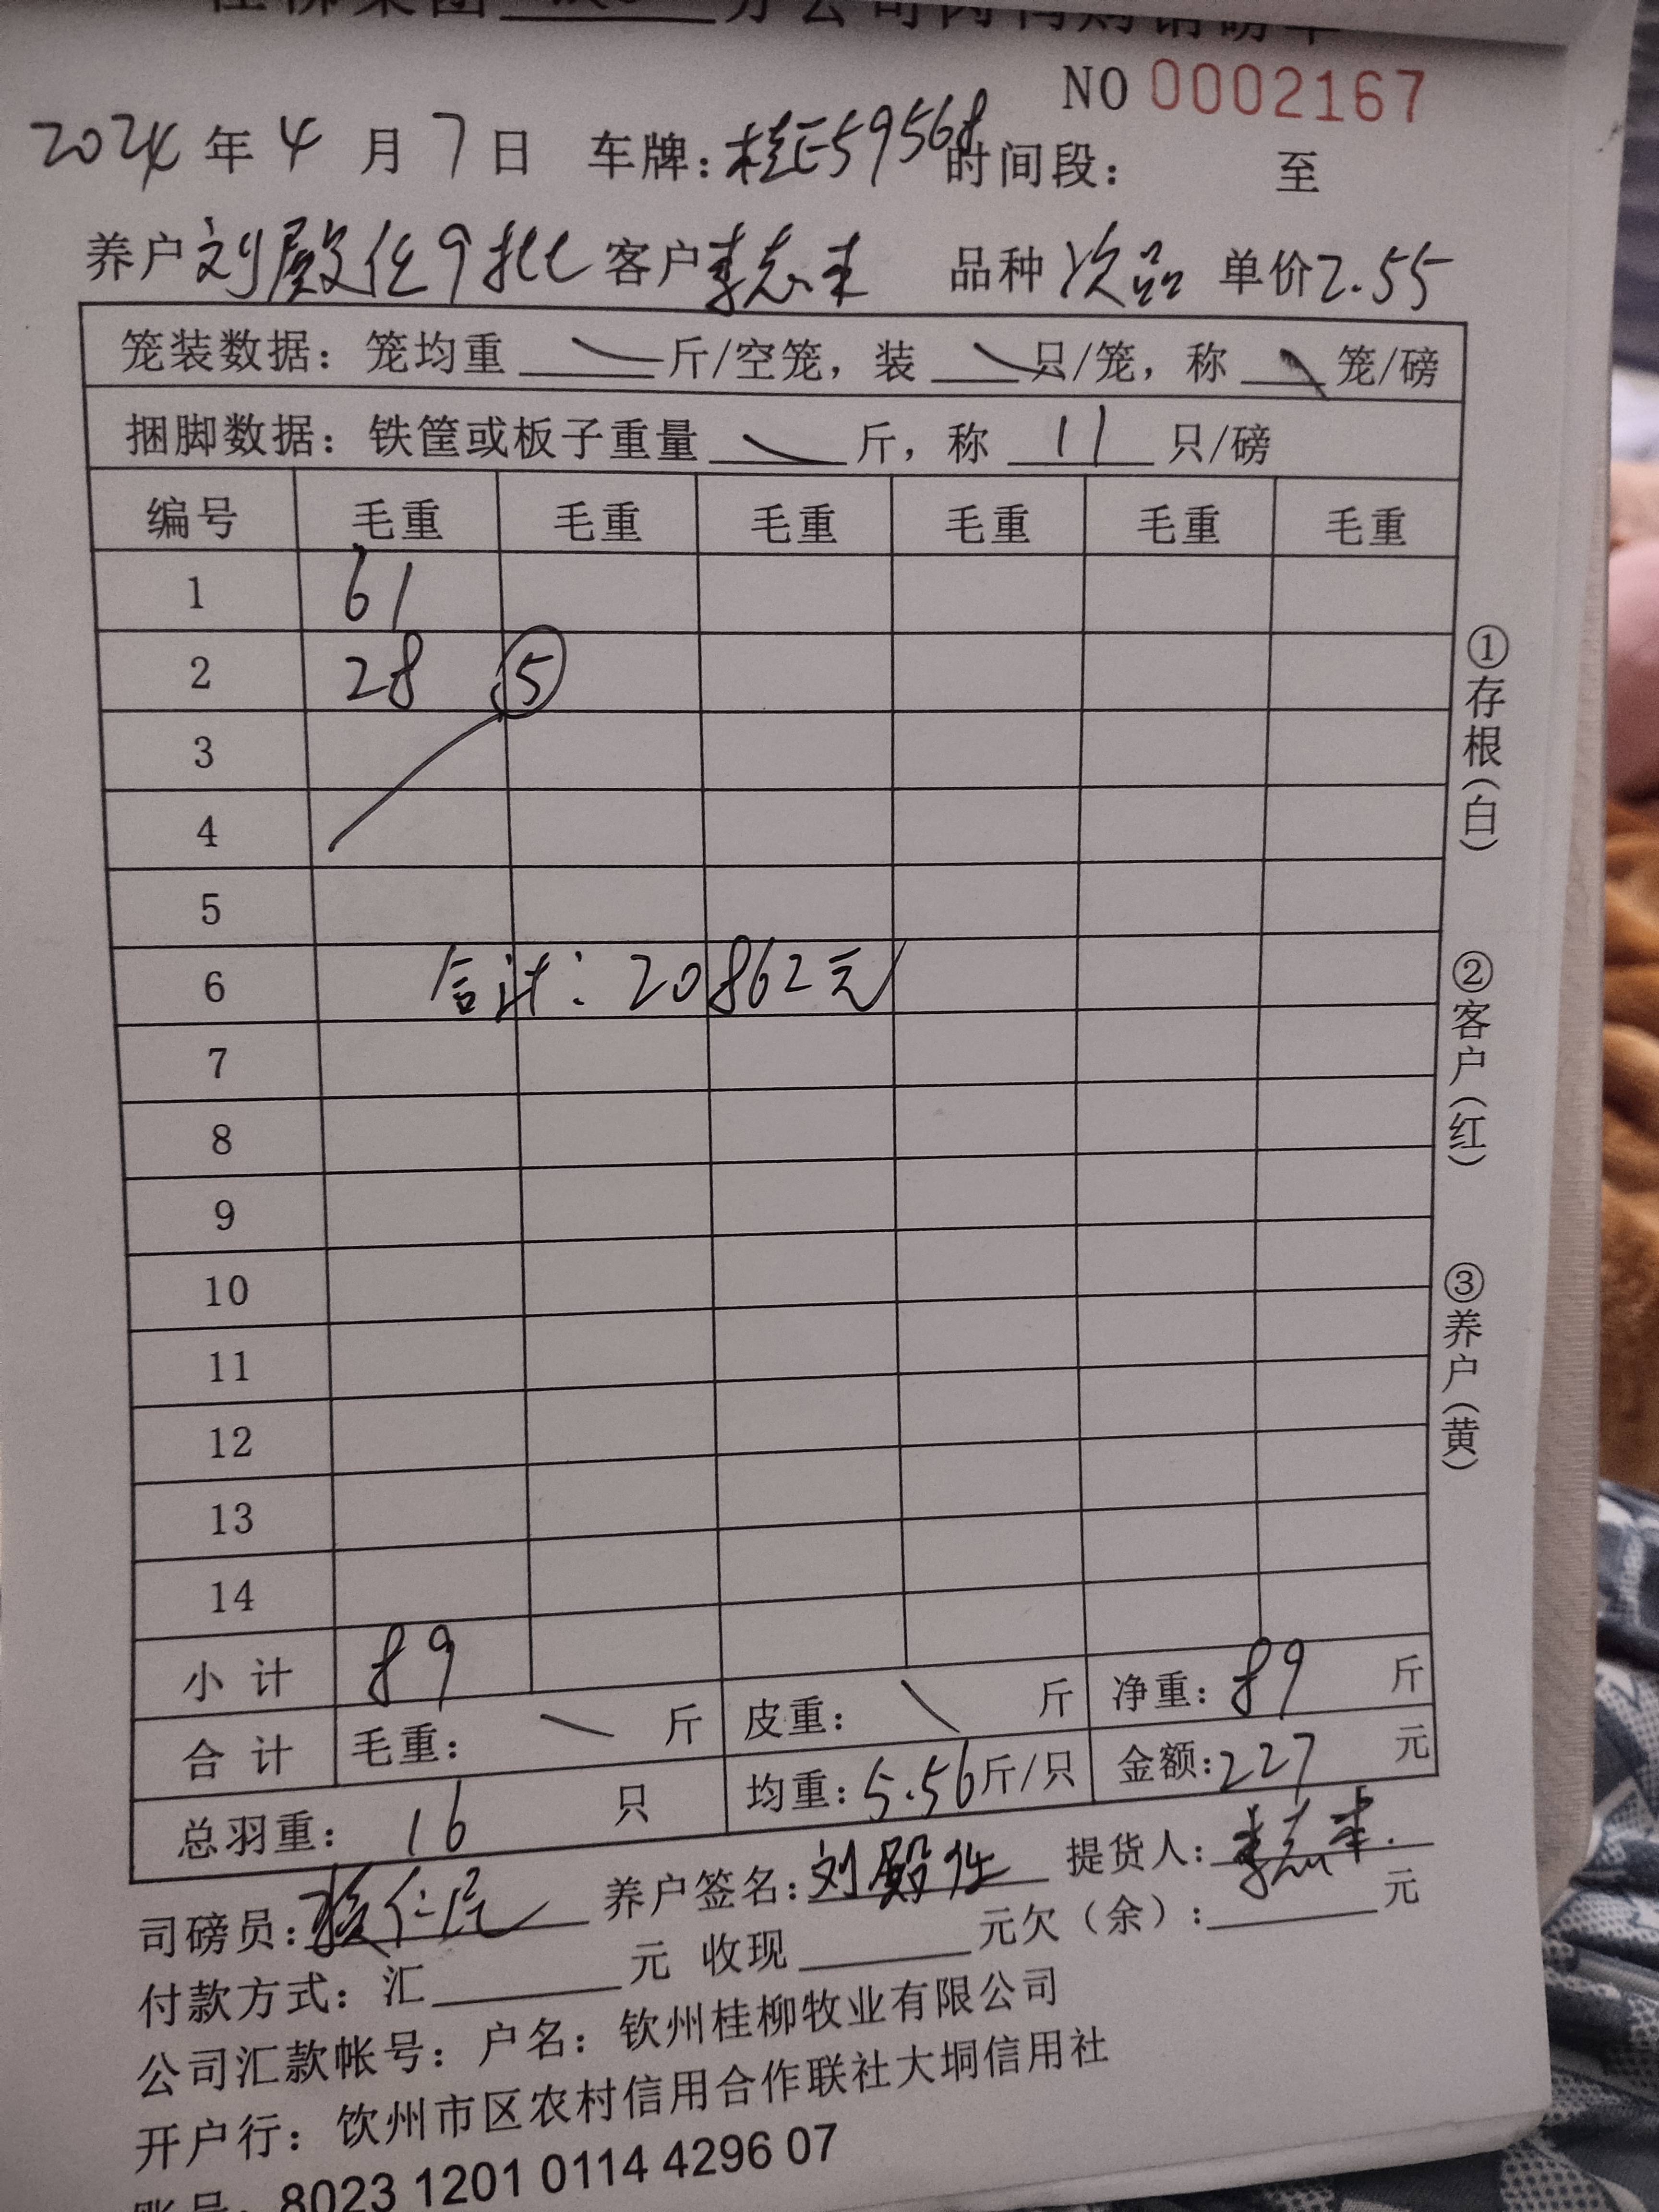 NO 0002167
2024年4月7日 车牌:桂E59568 时间段: 至
养户刘殿任9批 客户李志丰 品种次品 单价2.55
笼装数据:笼均重 斤/空笼,装 只/笼,称 笼/磅
捆脚数据:铁筐或板子重量 斤,称 11 只/磅
编号 毛重 毛重 毛重 毛重 毛重 毛重
1 61
2 28 ⑤
3
4
5
6 合计:20862元
7
8
9
10
11
12
13
14
小计 89
合计 毛重: 斤 皮重: 斤 净重:89 斤
总羽重:16 只 均重:5.56斤/只 金额:227 元
司磅员: 养户签名:刘殿任 提货人:李志丰
付款方式:汇 元 收现 元欠(余): 元
公司汇款帐号:户名:钦州桂柳牧业有限公司
开户行:钦州市区农村信用合作联社大垌信用社
账号:8023 1201 0114 4296 07
①存根(白)
②客户(红)
③养户(黄)